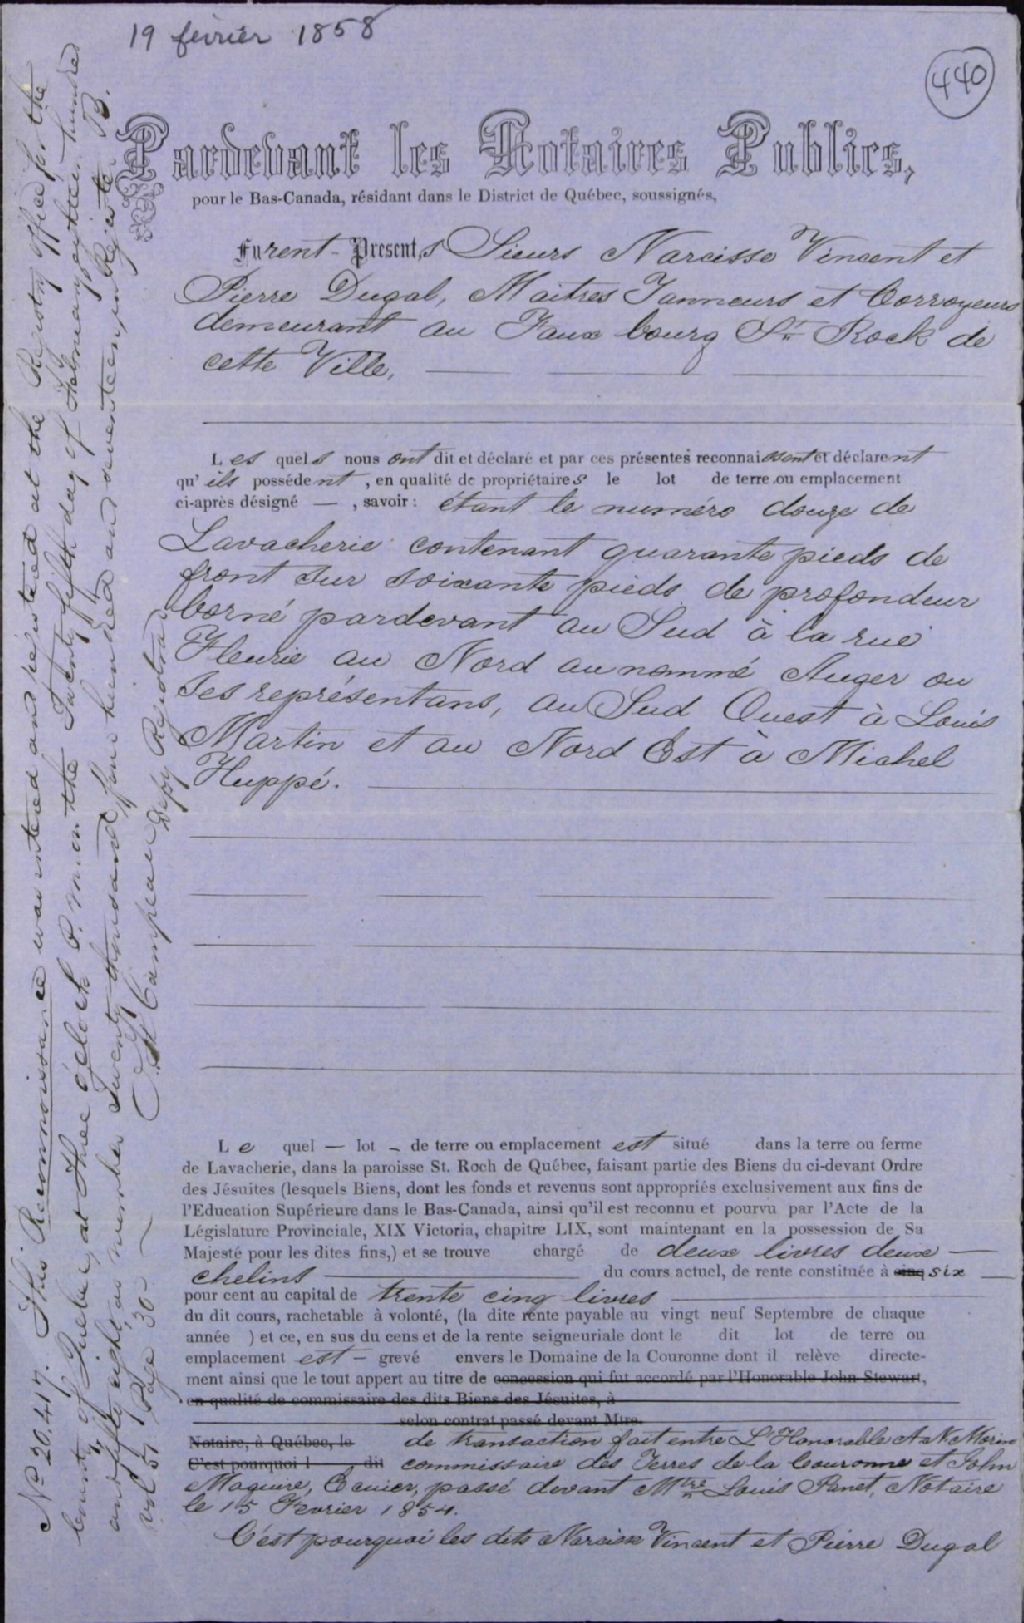 19 février 1858
440
Pardevant les Notaires Publics,
pour le Bas-Canada, résidant dans le District de Québec, soussignés,
Furent Present,s Sieurs Narcisse Vincent et
Pierre Dugal, Maitres Tanneurs et Corroyeurs
demeurant au Faux bourg St Rock de
cette Ville,
Les quels nous ont dit et déclaré et par ces présentes reconnaissent et déclarent
qu'ils possédent, en qualité de propriétaires le lot de terre ou emplacement
ci-après désigné —, savoir: étant le numéro douze de
Lavacherie contenant quarante pieds de
front sur soixante pieds de profondeur
borné pardevant au Sud à la rue
Fleurie au Nord au nommé Auger ou
ses représentans, au Sud Ouest à Louis
Martin et au Nord Est à Michel
Huppé.
Le quel — lot - de terre ou emplacement est situé dans la terre ou ferme
de Lavacherie, dans la paroisse St. Roch de Québec, faisant partie des Biens du ci-devant Ordre
des Jésuites (lesquels Biens, dont les fonds et revenus sont appropriés exclusivement aux fins de
l'Education Supérieure dans le Bas-Canada, ainsi qu'il est reconnu et pourvu par l'Acte de la
Législature Provinciale, XIX Victoria, chapitre LIX, sont maintenant en la possession de Sa
Majesté pour les dites fins,) et se trouve chargé de deux livres deux —
chelins du cours actuel, de rente constituée à cinq six —
pour cent au capital de trente cinq livres
du dit cours, rachetable à volonté, (la dite rente payable au vingt neuf Septembre de chaque
année ) et ce, en sus du cens et de la rente seigneuriale dont le dit lot de terre ou
emplacement est - grevé envers le Domaine de la Couronne dont il relève directe-
ment ainsi que le tout appert au titre de concession qui fut accordé par l'Honorable John Stewart,
en qualité de commissaire des dits Biens des Jésuites, à
selon contrat passé devant Mtre.
Notaire, à Québec, le de transaction fait entre L'Honorable A N Morin
C'est pourquoi l dit commissaire des Terres de la Couronne et John
Maguire, Ecuier, passé devant Mtre Louis Panet, Notaire
le 15 Fevrier 1854.
C'est pourquoi les dits Narcisse Vincent et Pierre Dugal
No 20.417. This Reconnoissance was entered and registered at the Registry office for the
County of Quebec, at three o'clock P.M. on the Twenty fifth day of February eighteen hundred
and fifty eight, as number Twenty thousand four hundred and seventeen, in Register B.
vol 51 Page 30 —
Campeau Depy Registrar